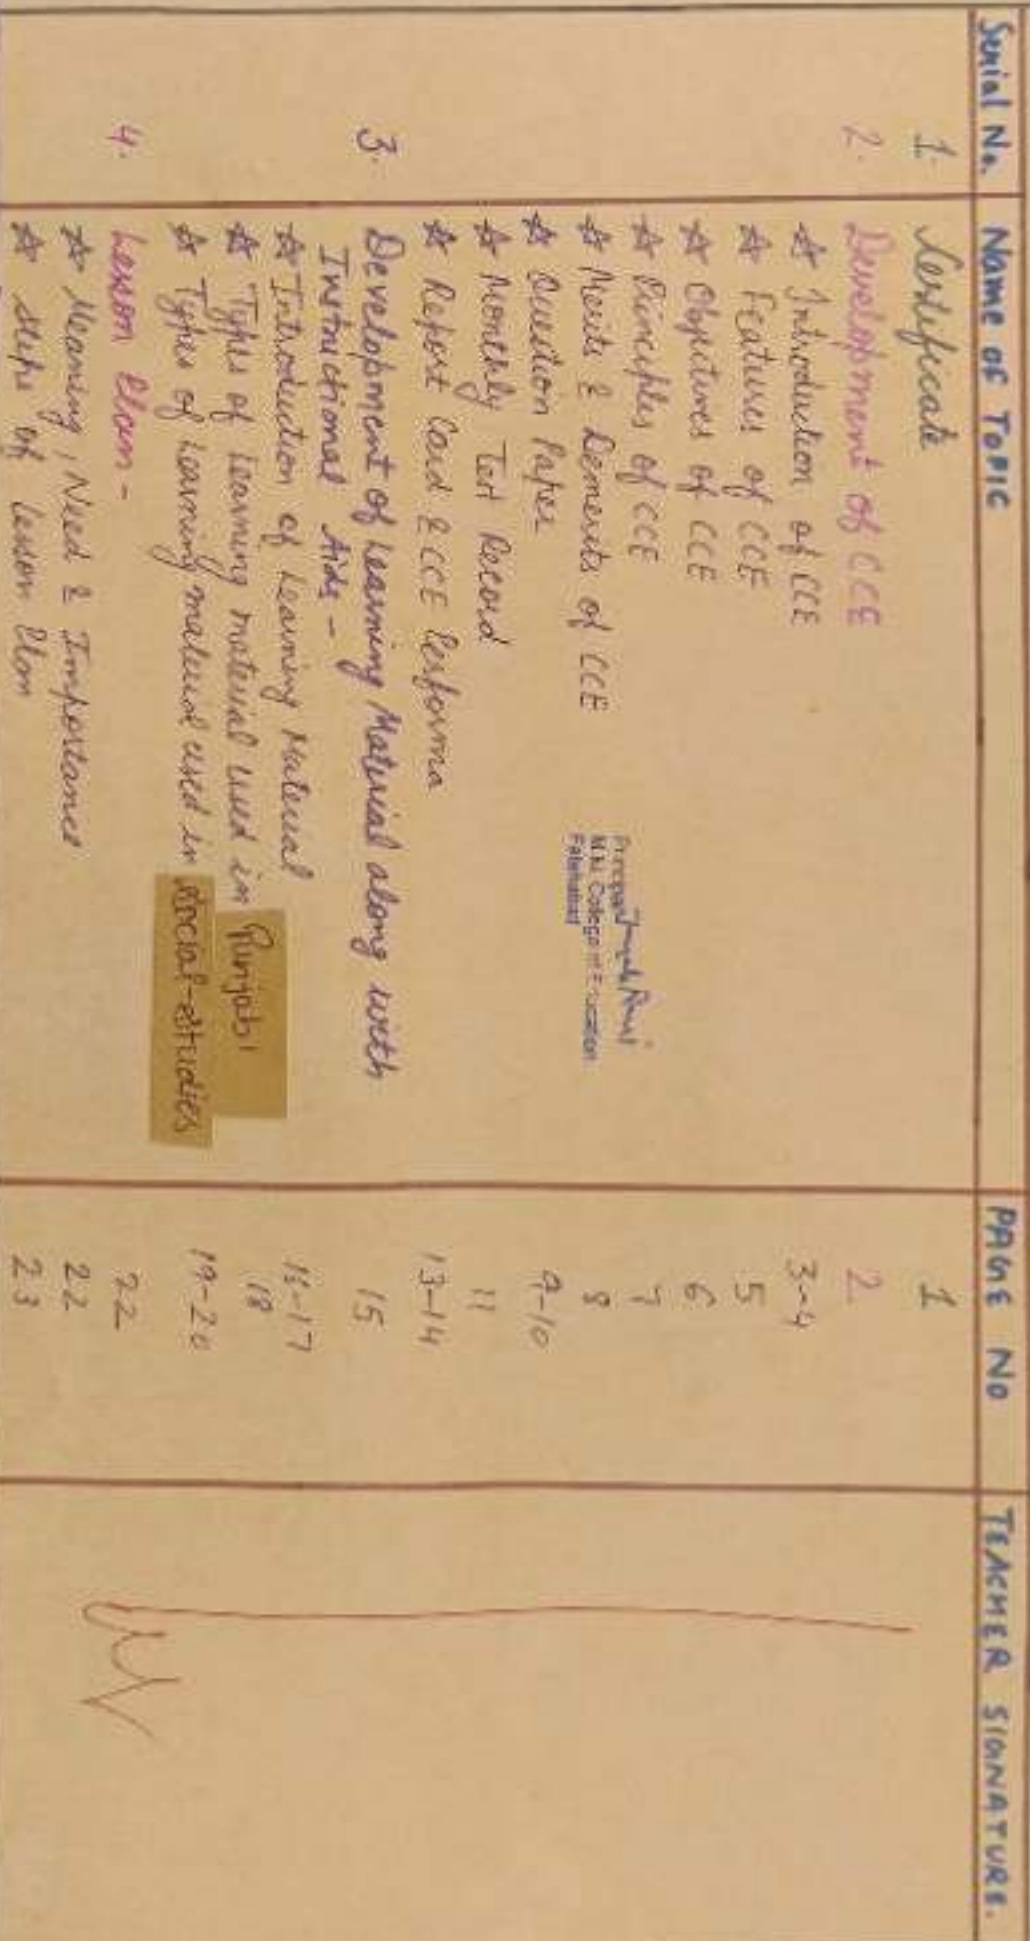 Serial No. NAME OF TOPIC PAGE NO TEACHER SIGNATURE.
1. Certificate 1
2. Development of CCE 2
☆ Introduction of CCE 3-4
☆ Features of CCE 5
☆ Objectives of CCE 6
☆ Principles of CCE 7
☆ Merits & Demerits of CCE 8
☆ Question Paper 9-10
☆ Monthly Test Record 11
☆ Report Card & CCE Performa 13-14
3. Development of Learning Material along with 15
Instructional Aids -
☆ Introduction of Learning Material 16-17
☆ Types of Learning material used in Punjabi 18
☆ Types of Learning material used in social-studies 19-20
4. Lesson Plan - 22
☆ Meaning, Need & Importance 22
☆ Steps of Lesson Plan 23
Principal
College of Education